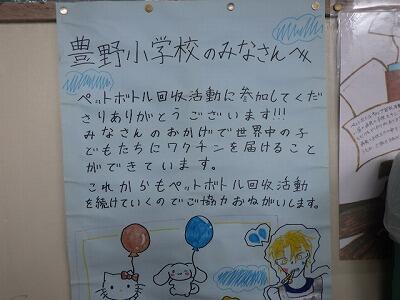 豊野小学校のみなさんへ
ペットボトル回収活動に参加してくだ
さりありがとうございます!!!
みなさんのおかげで世界中の子
どもたちにワクチンを届けること
ができています。
これからもペットボトル回収活動
を続けていくのでご協力おねがいします。